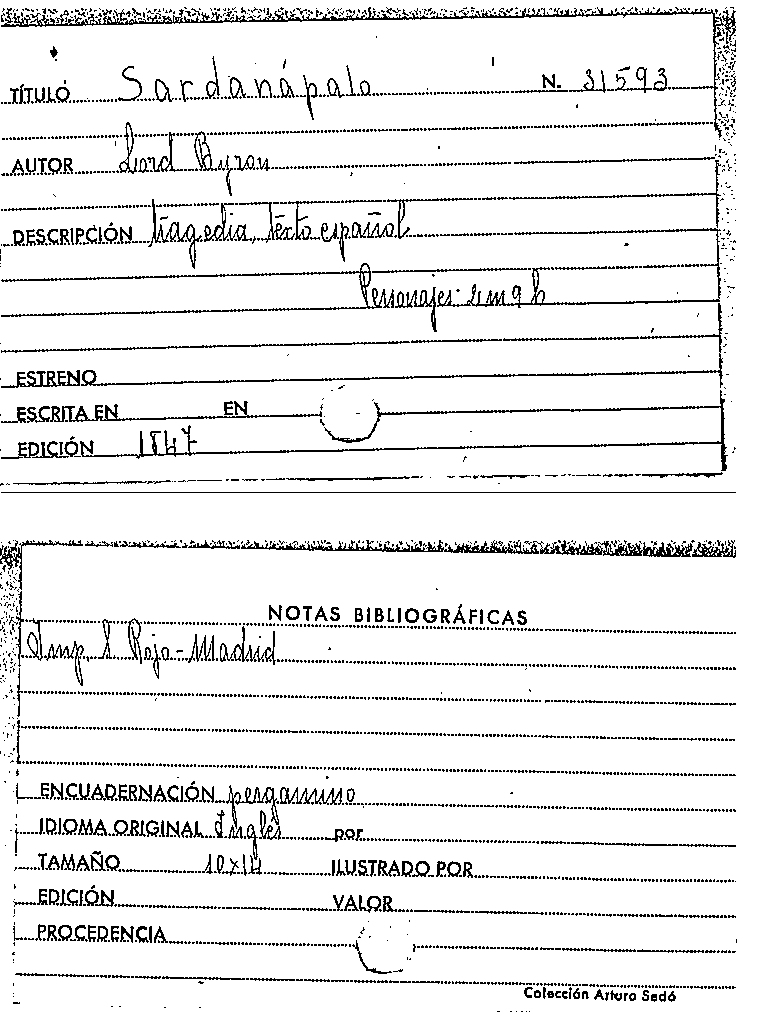 TÍTULO Sardanápalo N. 31593
AUTOR Lord Byron
DESCRIPCIÓN tragedia, texto español
Personajes: 2 m 9 h
ESTRENO
ESCRITA EN EN
EDICIÓN 1847
NOTAS BIBLIOGRÁFICAS
Imp. Rojo-Madrid
ENCUADERNACIÓN pergamino
IDIOMA ORIGINAL Inglés por
TAMAÑO ILUSTRADO POR
EDICIÓN VALOR
PROCEDENCIA
Colección Arturo Sedó